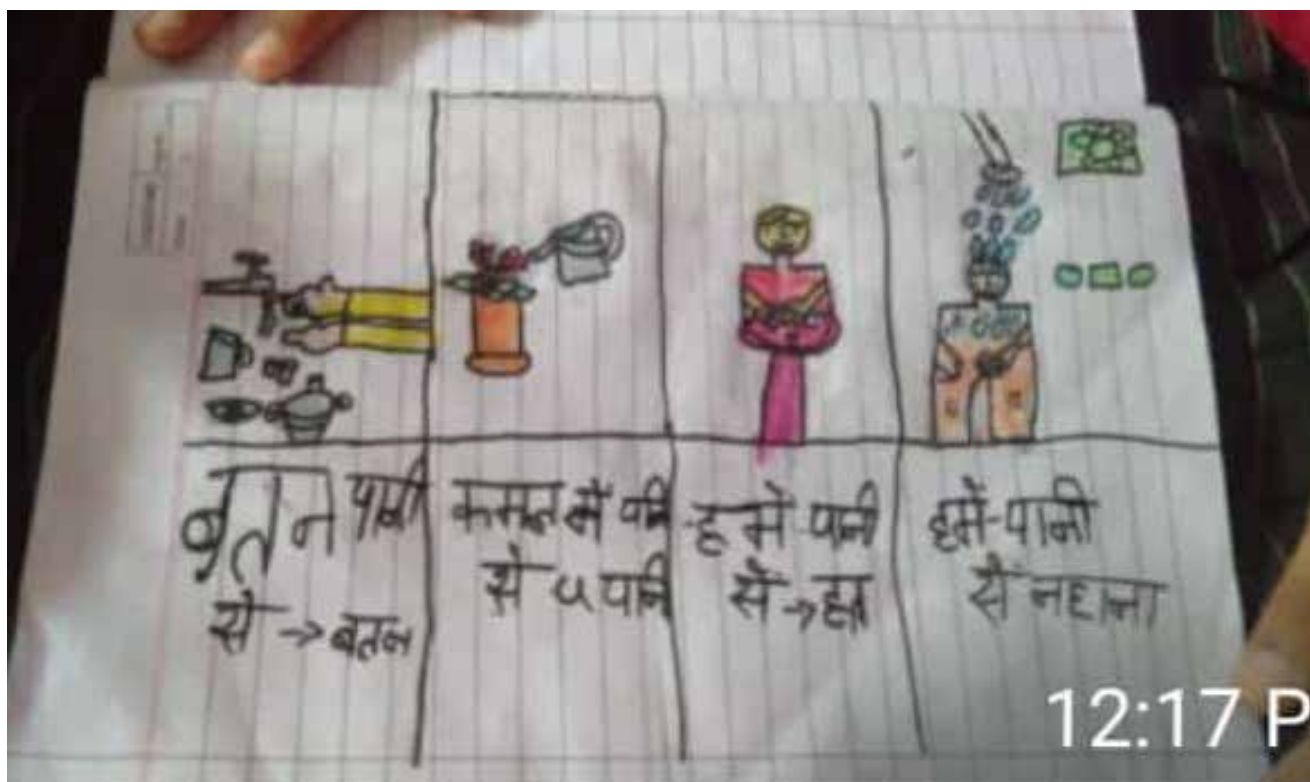 बतन पानी
से → बतन
कमल में पनि
से पानि
हमे पानी
से → हात
हमें पानी
से नहाना
12:17 P